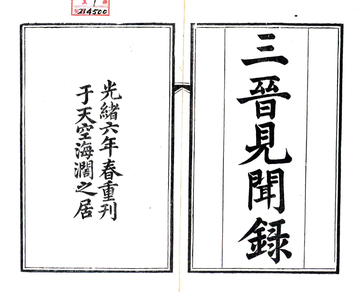 三晉見聞錄
光緒六年春重刊
于天空海濶之居
214500